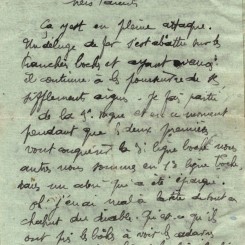 Mes Parents
Ça y est en pleine attaque.
Un déluge de fer s'est abattu sur les
tranchées boches et ayant avancé
il continue à la poursuite de
sifflements aigus. Je fais partie
de la 3e et en ce moment
pendant que les deux premières
vont conquérir la 3e ligne boche nous
autres nous sommes en 1e ligne boche
dans un abri qui a été épargné.
oh j'en ai mal à la tête du
chahut du diable. Qu'est-ce qu'ils
ont pris les boches à voir le